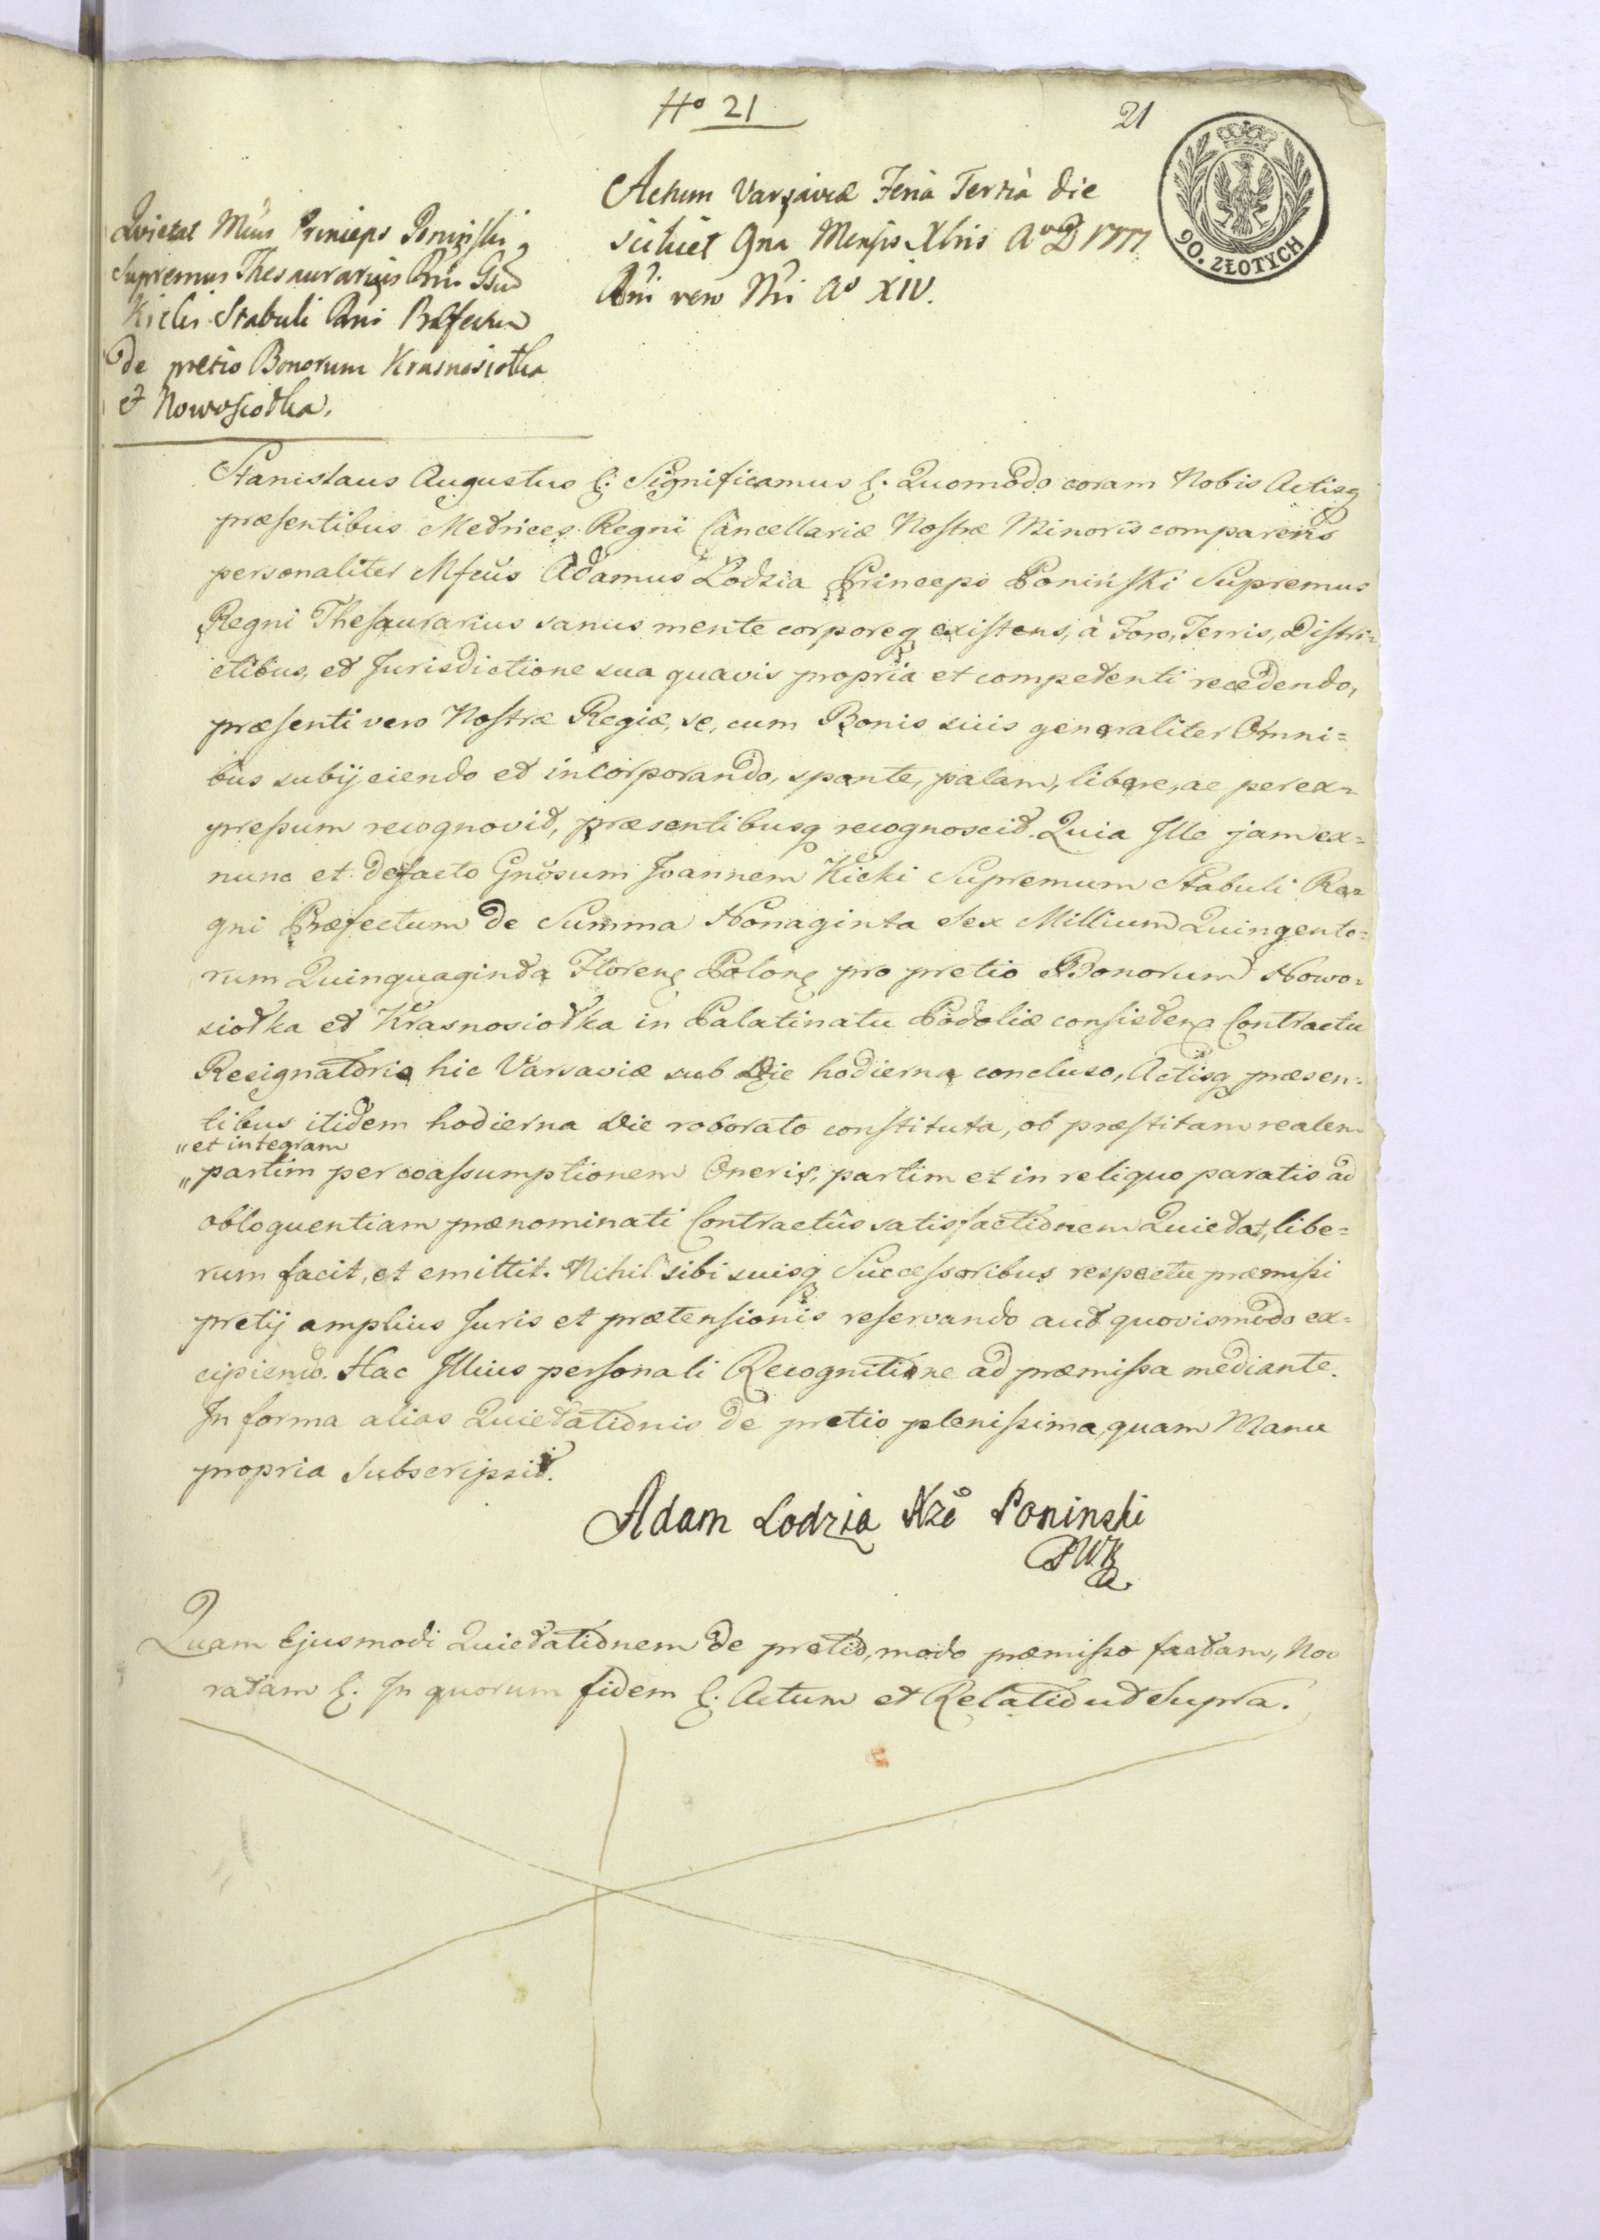 No 21
21
90. ZŁOTYCH
Actum Varsaviæ Feria Tertia die
scilicet 9na Mensis Xbris Ao D 1777
Rni vero Nri Ao XIV.
Quietat Mcus Princeps Poniński
Supremus Thesaurarius Rni Gsum
Kicki Stabuli Rni Præfectum
de pretio Bonorum Krasnosiołka
et Nowosiołka.
Stanislaus Augustus &. Significamus &. Quomodo coram Nobis Actisq
præsentibus Metrices Regni Cancellariæ Nostræ Minoris comparens
personaliter Mfcus Adamus Łodzia Princeps Poniński Supremus
Regni Thesaurarius sanus mente corporeq existens, à Foro, Terris, Distri=
ctibus, et Jurisdictione sua quavis propria et competenti recedendo,
præsenti vero Nostræ Regiæ, se, cum Bonis suis generaliter Omni=
bus subijciendo et incorporando, sponte, palam, libere, ac per ex=
pressum recognovit, præsentibusq recognoscit. Quia Ille jam ex=
nunc et defacto Gnosum Joannem Kicki Supremum Stabuli Re=
gni Præfectum de Summa Nonaginta Sex Millium Quingento=
rum Quinquaginta Floren Polon pro pretio Bonorum Nowo=
siołka et Krasnosiołka in Palatinatu Podoliæ consisten Contractu
Resignatorio hic Varsaviæ sub Die hodierna concluso, Actisq præsen=
tibus itidem hodierna Die roborato constituta, ob præstitam realem
"et integram
"partim per coassumptionem Oneris, partim et in reliquo paratis ad
obloquentiam prænominati Contractûs satisfactionem Quietat, libe=
rum facit, et emittit. Nihil sibi suisq Successoribus respectu præmissi
pretij amplius Juris et prætensionis reservando aut quovismodo ex=
cipiendo. Hac Illius personali Recognitione ad præmissa mediante.
In forma alias Quietationis de pretio plenissima, quam Manu
propria Subscripsit.
Adam Lodzia Xże Poninski
PWK
Quam Ejusmodi Quietationem de pretio, modo præmisso factam, Nos
ratam &. In quorum fidem &. Actum et Relatio ut Supra.